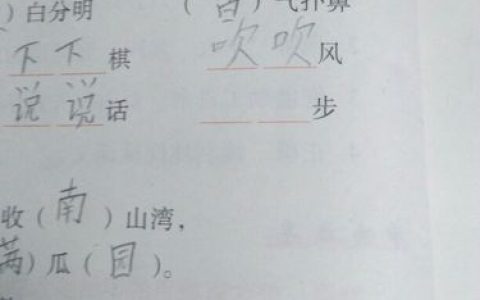 )白分明 ( )气扑鼻
下下棋 吹吹风
说说话 步
收(南)山湾，
满)瓜(园)。